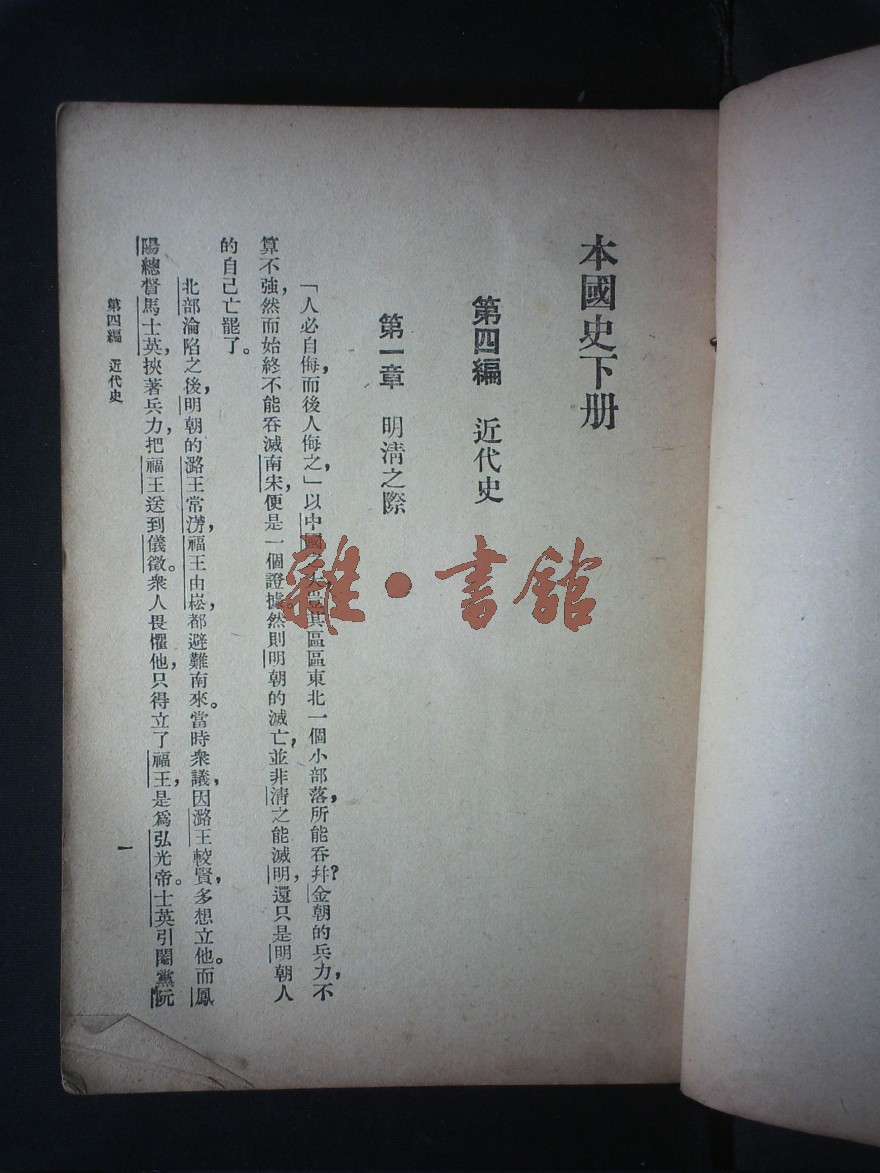 本國史下册
第四編　近代史
第一章　明清之際
「人必自侮，而後人侮之，」以中國之大，豈其區區東北一個小部落，所能吞幷？金朝的兵力，不
算不強，然而始終不能吞滅南宋，便是一個證據。然則明朝的滅亡，並非清之能滅明，還只是明朝人
的自己亡罷了。
北部淪陷之後，明朝的潞王常淓，福王由崧，都避難南來。當時衆議，因潞王較賢，多想立他。而鳳
陽總督馬士英，挾著兵力，把福王送到儀徵。衆人畏懼他，只得立了福王，是爲弘光帝。士英引閹黨阮
第四編　近代史
一
雜·書館